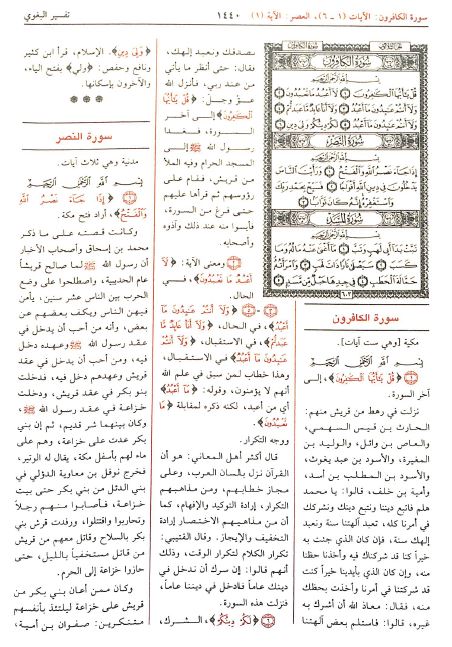 سورة الكافرون: الآيات (١ - ٦)، العصر: الآية (١)
١٤٤٠
تفسير البغوي
سورة الكافرون
بِسْمِ اللَّهِ الرَّحْمَٰنِ الرَّحِيمِ
قُلْ يَا أَيُّهَا الْكَافِرُونَ ۝١ لَا أَعْبُدُ مَا تَعْبُدُونَ ۝٢
وَلَا أَنتُمْ عَابِدُونَ مَا أَعْبُدُ ۝٣ وَلَا أَنَا عَابِدٌ مَّا عَبَدتُّمْ ۝٤
وَلَا أَنتُمْ عَابِدُونَ مَا أَعْبُدُ ۝٥ لَكُمْ دِينُكُمْ وَلِيَ دِينِ ۝٦
سورة النصر
بِسْمِ اللَّهِ الرَّحْمَٰنِ الرَّحِيمِ
إِذَا جَاءَ نَصْرُ اللَّهِ وَالْفَتْحُ ۝١ وَرَأَيْتَ النَّاسَ
يَدْخُلُونَ فِي دِينِ اللَّهِ أَفْوَاجًا ۝٢ فَسَبِّحْ بِحَمْدِ رَبِّكَ
وَاسْتَغْفِرْهُ إِنَّهُ كَانَ تَوَّابًا ۝٣
سورة المسد
بِسْمِ اللَّهِ الرَّحْمَٰنِ الرَّحِيمِ
تَبَّتْ يَدَا أَبِي لَهَبٍ وَتَبَّ ۝١ مَا أَغْنَىٰ عَنْهُ مَالُهُ وَمَا
كَسَبَ ۝٢ سَيَصْلَىٰ نَارًا ذَاتَ لَهَبٍ ۝٣ وَامْرَأَتُهُ
حَمَّالَةَ الْحَطَبِ ۝٤ فِي جِيدِهَا حَبْلٌ مِّن مَّسَدٍ ۝٥
٦٠٣
سورة الكافرون
مكية [وهي ست آيات].
بِسْمِ اللَّهِ الرَّحْمَٰنِ الرَّحِيمِ
(١) ﴿قُلْ يَا أَيُّهَا الْكَافِرُونَ﴾، إلى
آخر السورة.
نزلت في رهط من قريش منهم:
الحارث بن قيس السهمي،
والعاص بن وائل، والوليد بن
المغيرة، والأسود بن عبد يغوث،
والأسود بن المطلب بن أسد،
وأمية بن خلف، قالوا: يا محمد
هلم فاتبع ديننا ونتبع دينك ونشركك
في أمرنا كله، تعبد آلهتنا سنة ونعبد
إلهك سنة، فإن كان الذي جئت به
خيراً كنا قد شركناك فيه وأخذنا حظنا
منه، وإن كان الذي بأيدينا خيراً كنت
قد شركتنا في أمرنا وأخذت بحظك
منه، فقال: معاذ الله أن أشرك به
غيره، قالوا: فاستلم بعض آلهتنا
نصدقك ونعبد إلهك،
فقال: حتى أنظر ما يأتي
من عند ربي، فأنزل الله
عزّ وجلّ: ﴿قُلْ يَا أَيُّهَا
الْكَافِرُونَ﴾ إلى آخر
السورة، فغدا
رسول الله ﷺ إلى
المسجد الحرام وفيه الملأ
من قريش، فقام على
رؤوسهم ثم قرأها عليهم
حتى فرغ من السورة،
فأيسوا منه عند ذلك وآذوه
وأصحابه.
(٢) ومعنى الآية: ﴿لَا
أَعْبُدُ مَا تَعْبُدُونَ﴾، في
الحال.
(٣ - ٥) ﴿وَلَا أَنتُمْ عَابِدُونَ مَا
أَعْبُدُ﴾، في الحال، ﴿وَلَا أَنَا عَابِدٌ مَّا
عَبَدتُّمْ﴾، في الاستقبال، ﴿وَلَا أَنتُمْ
عَابِدُونَ مَا أَعْبُدُ﴾ في الاستقبال،
وهذا خطاب لمن سبق في علم الله
أنهم لا يؤمنون، وقوله: ﴿مَا أَعْبُدُ﴾
أي من أعبد، لكنه ذكره لمقابلة ﴿مَا
تَعْبُدُونَ﴾.
ووجه التكرار.
قال أكثر أهل المعاني: هو أن
القرآن نزل بلسان العرب، وعلى
مجاز خطابهم، ومن مذاهبهم
التكرار، إرادة التوكيد والإفهام، كما
أن من مذاهبهم الاختصار إرادة
التخفيف والإيجاز. وقال القتيبي:
تكرار الكلام لتكرار الوقت، وذلك
أنهم قالوا: إن سرك أن ندخل في
دينك عاماً فادخل في ديننا عاماً،
فنزلت هذه السورة.
(٦) ﴿لَكُمْ دِينُكُمْ﴾، الشرك،
﴿وَلِيَ دِينِ﴾، الإسلام، قرأ ابن كثير
ونافع وحفص: «ولي» بفتح الياء،
والآخرون بإسكانها.
* * *
سورة النصر
مدنية وهي ثلاث آيات.
بِسْمِ اللَّهِ الرَّحْمَٰنِ الرَّحِيمِ
(١) ﴿إِذَا جَاءَ نَصْرُ اللَّهِ
وَالْفَتْحُ﴾، أراد فتح مكة.
وكانت قصته على ما ذكر
محمد بن إسحاق وأصحاب الأخبار
أن رسول الله ﷺ لما صالح قريشاً
عام الحديبية، واصطلحوا على وضع
الحرب بين الناس عشر سنين، يأمن
فيهن الناس ويكف بعضهم عن
بعض، وأنه من أحب أن يدخل في
عقد رسول الله ﷺ وعهده دخل
فيه، ومن أحب أن يدخل في عقد
قريش وعهدهم دخل فيه، فدخلت
بنو بكر في عقد قريش، ودخلت
خزاعة في عقد رسول الله ﷺ،
وكان بينهما شر قديم، ثم إن بني
بكر عدت على خزاعة، وهم على
ماء لهم بأسفل مكة، يقال له الوتير،
فخرج نوفل بن معاوية الدؤلي في
بني الدئل من بني بكر حتى بيت
خزاعة، فأصابوا منهم رجلاً،
وتحاوروا واقتتلوا، ورفدت قرش بني
بكر بالسلاح وقاتل معهم من قريش
من قاتل مستخفياً بالليل، حتى
حازوا خزاعة إلى الحرم.
وكان ممن أعان بني بكر من
قريش على خزاعة ليلتئذ بأنفسهم
متنكرين: صفوان بن أمية،